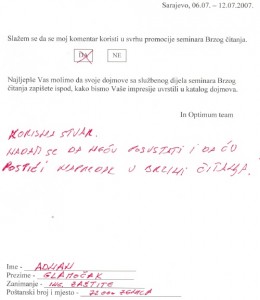 Sarajevo, 06.07. – 12.07.2007.
Slažem se da se moj komentar koristi u svrhu promocije seminara Brzog
čitanja.
DA NE
Najljepše Vas molimo da svoje dojmove sa službenog dijela seminara Brzog
čitanja zapišete ispod, kako bismo Vaše impresije uvrstili u katalog dojmova.
In Optimum team
KORISNA STVAR.
NADAM SE DA NEĆU POSUSTATI I DA ĆU
POSTIĆI NAPREDAK U BRZINI ČITANJA.
Ime - ADNAN
Prezime - GLAMOČAK
Zanimanje - ING. ZAŠTITE
Poštanski broj i mjesto - 72000 ZENICA